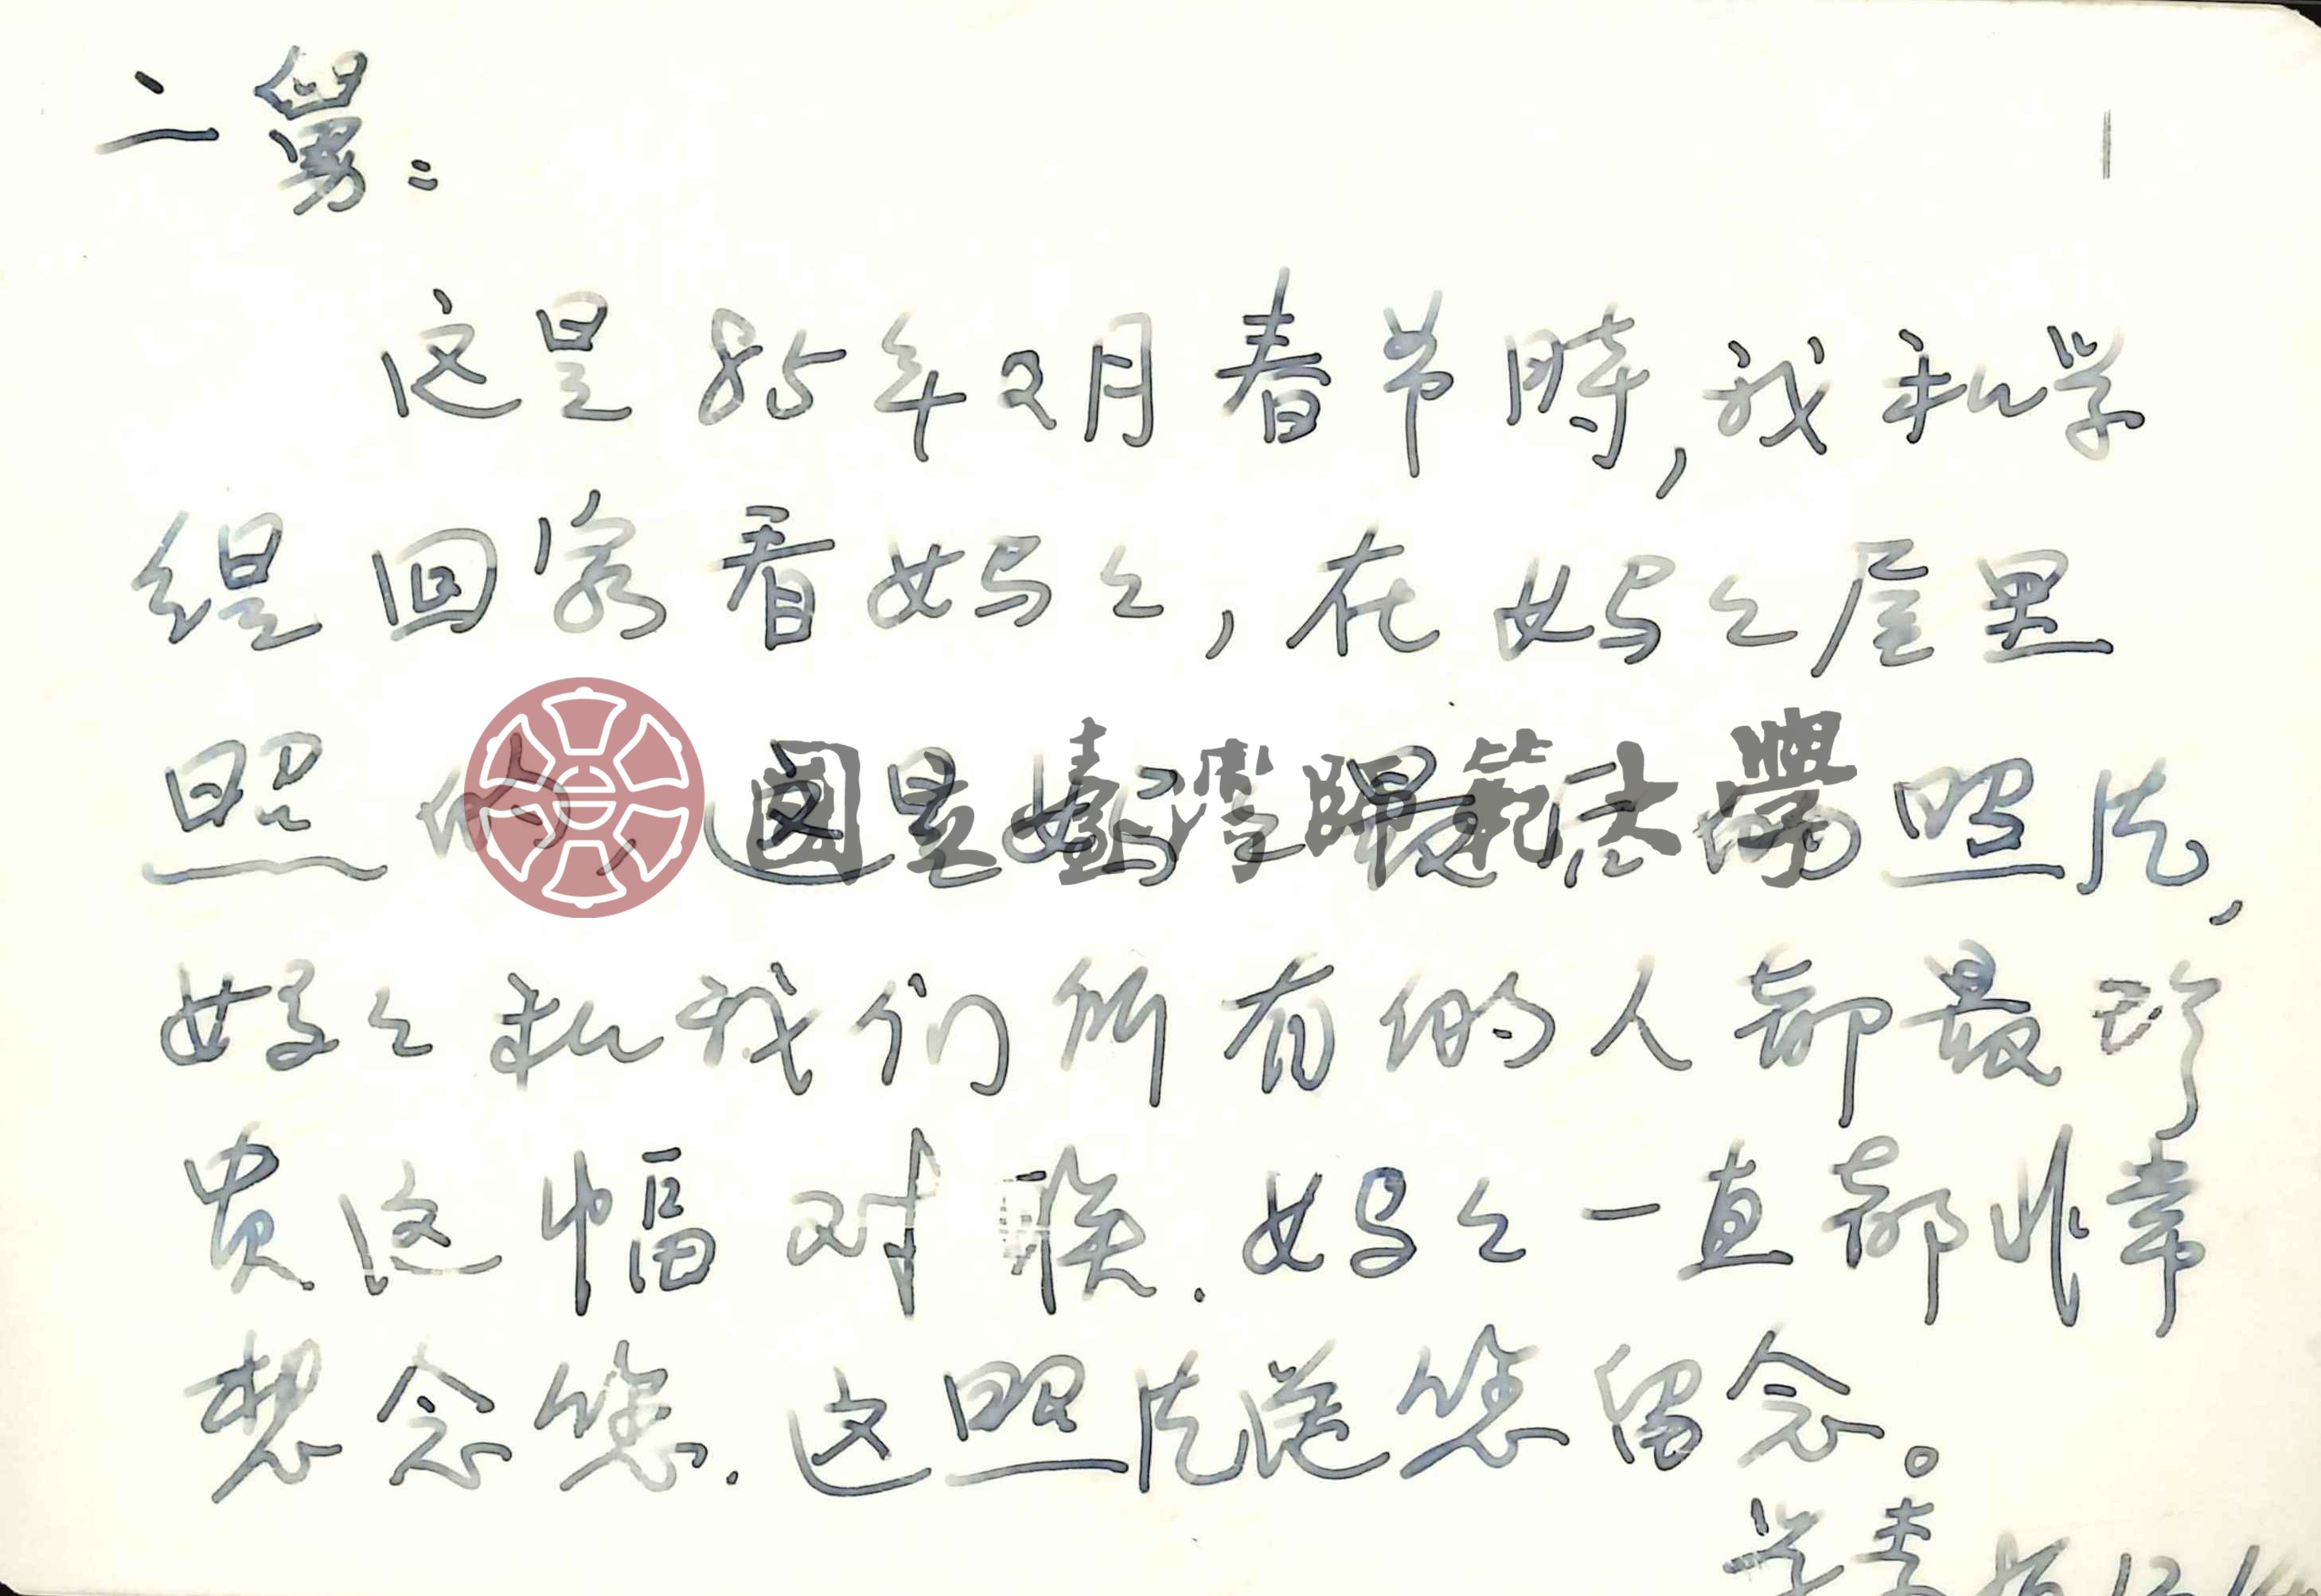 二舅：
这是85年2月春节時,我和学
缇回家看妈々,在妈々屋里
照的,这是妈々最后的照片,
國立臺灣師範大學
妈々和我们所有的人都最珍
贵这幅对联.妈々一直都非常
想念您.这照片送您留念。
学李